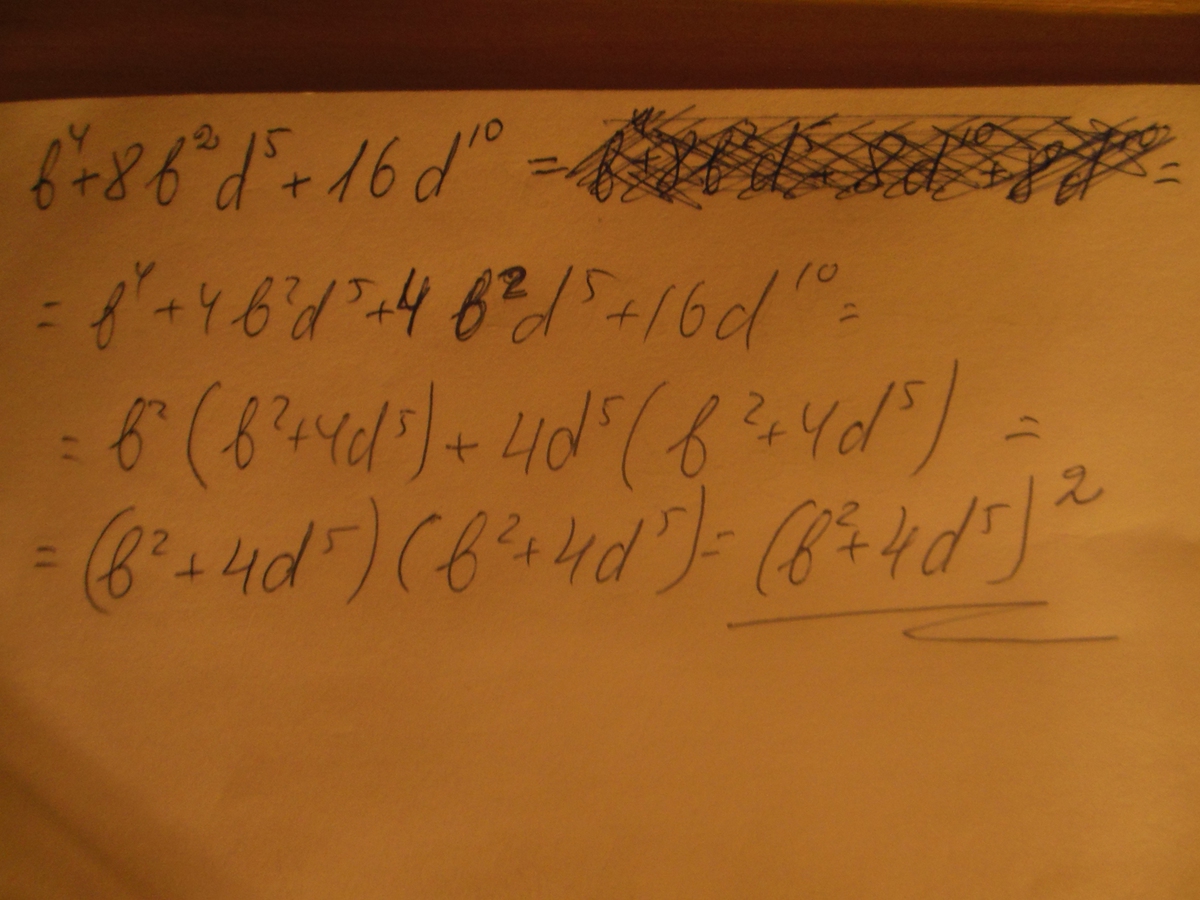 b⁴+8b²d⁵+16d¹⁰ = =
= b⁴+4b²d⁵+4b²d⁵+16d¹⁰ =
= b²(b²+4d⁵)+4d⁵(b²+4d⁵) =
= (b²+4d⁵)(b²+4d⁵) = (b²+4d⁵)²